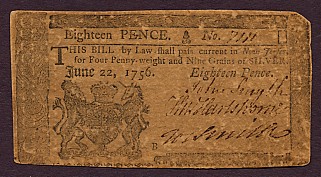 Eighteen PENCE. No.
THIS BILL by Law shall pass current in New-Jersey,
for Four Penny-weight and Nine Grains of SILVER.
June 22, 1756. Eighteen Pence.
John Smyth
R Smith
B